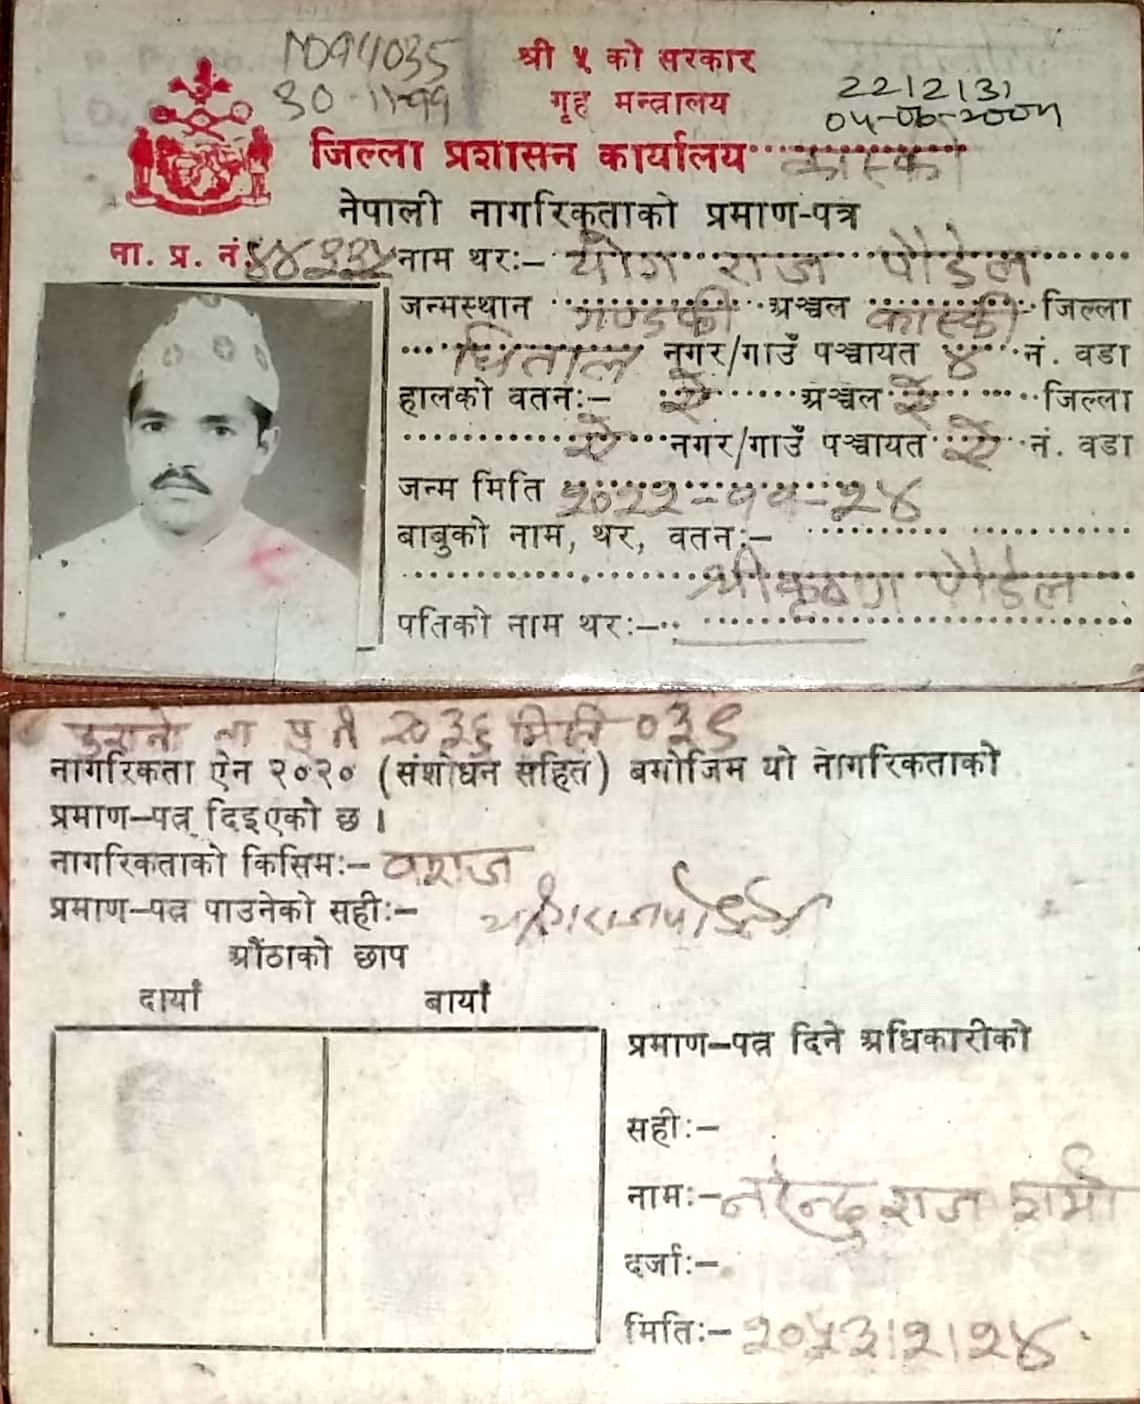 N094035
30-11-99
श्री ५ को सरकार
गृह मन्त्रालय
2212131
04-06-2004
जिल्ला प्रशासन कार्यालय कास्की
नेपाली नागरिकताको प्रमाण-पत्र
ना. प्र. नं. नाम थर:- योग राज पौडेल
जन्मस्थान गण्डकी अञ्चल कास्की जिल्ला
धिताल नगर/गाउँ पञ्चायत ४ नं. वडा
हालको वतन:- ऐ अञ्चल ऐ जिल्ला
ऐ नगर/गाउँ पञ्चायत ऐ नं. वडा
जन्म मिति २०२२-११-२४
बाबुको नाम, थर, वतन:-
श्रीकृष्ण पौडेल
पतिको नाम थर:-
ना प्र नं २०३६ मिति ०३९
नागरिकता ऐन २०२० (संशोधन सहित) बमोजिम यो नागरिकताको
प्रमाण-पत्र दिइएको छ ।
नागरिकताको किसिम:- वंशज
प्रमाण-पत्र पाउनेको सही:- योगराज पौडेल
औंठाको छाप
दायाँ बायाँ
प्रमाण-पत्र दिने अधिकारीको
सही:-
नाम:- नरेन्द्र राज शर्मा
दर्जा:-
मिति:- २०५३।२।२४